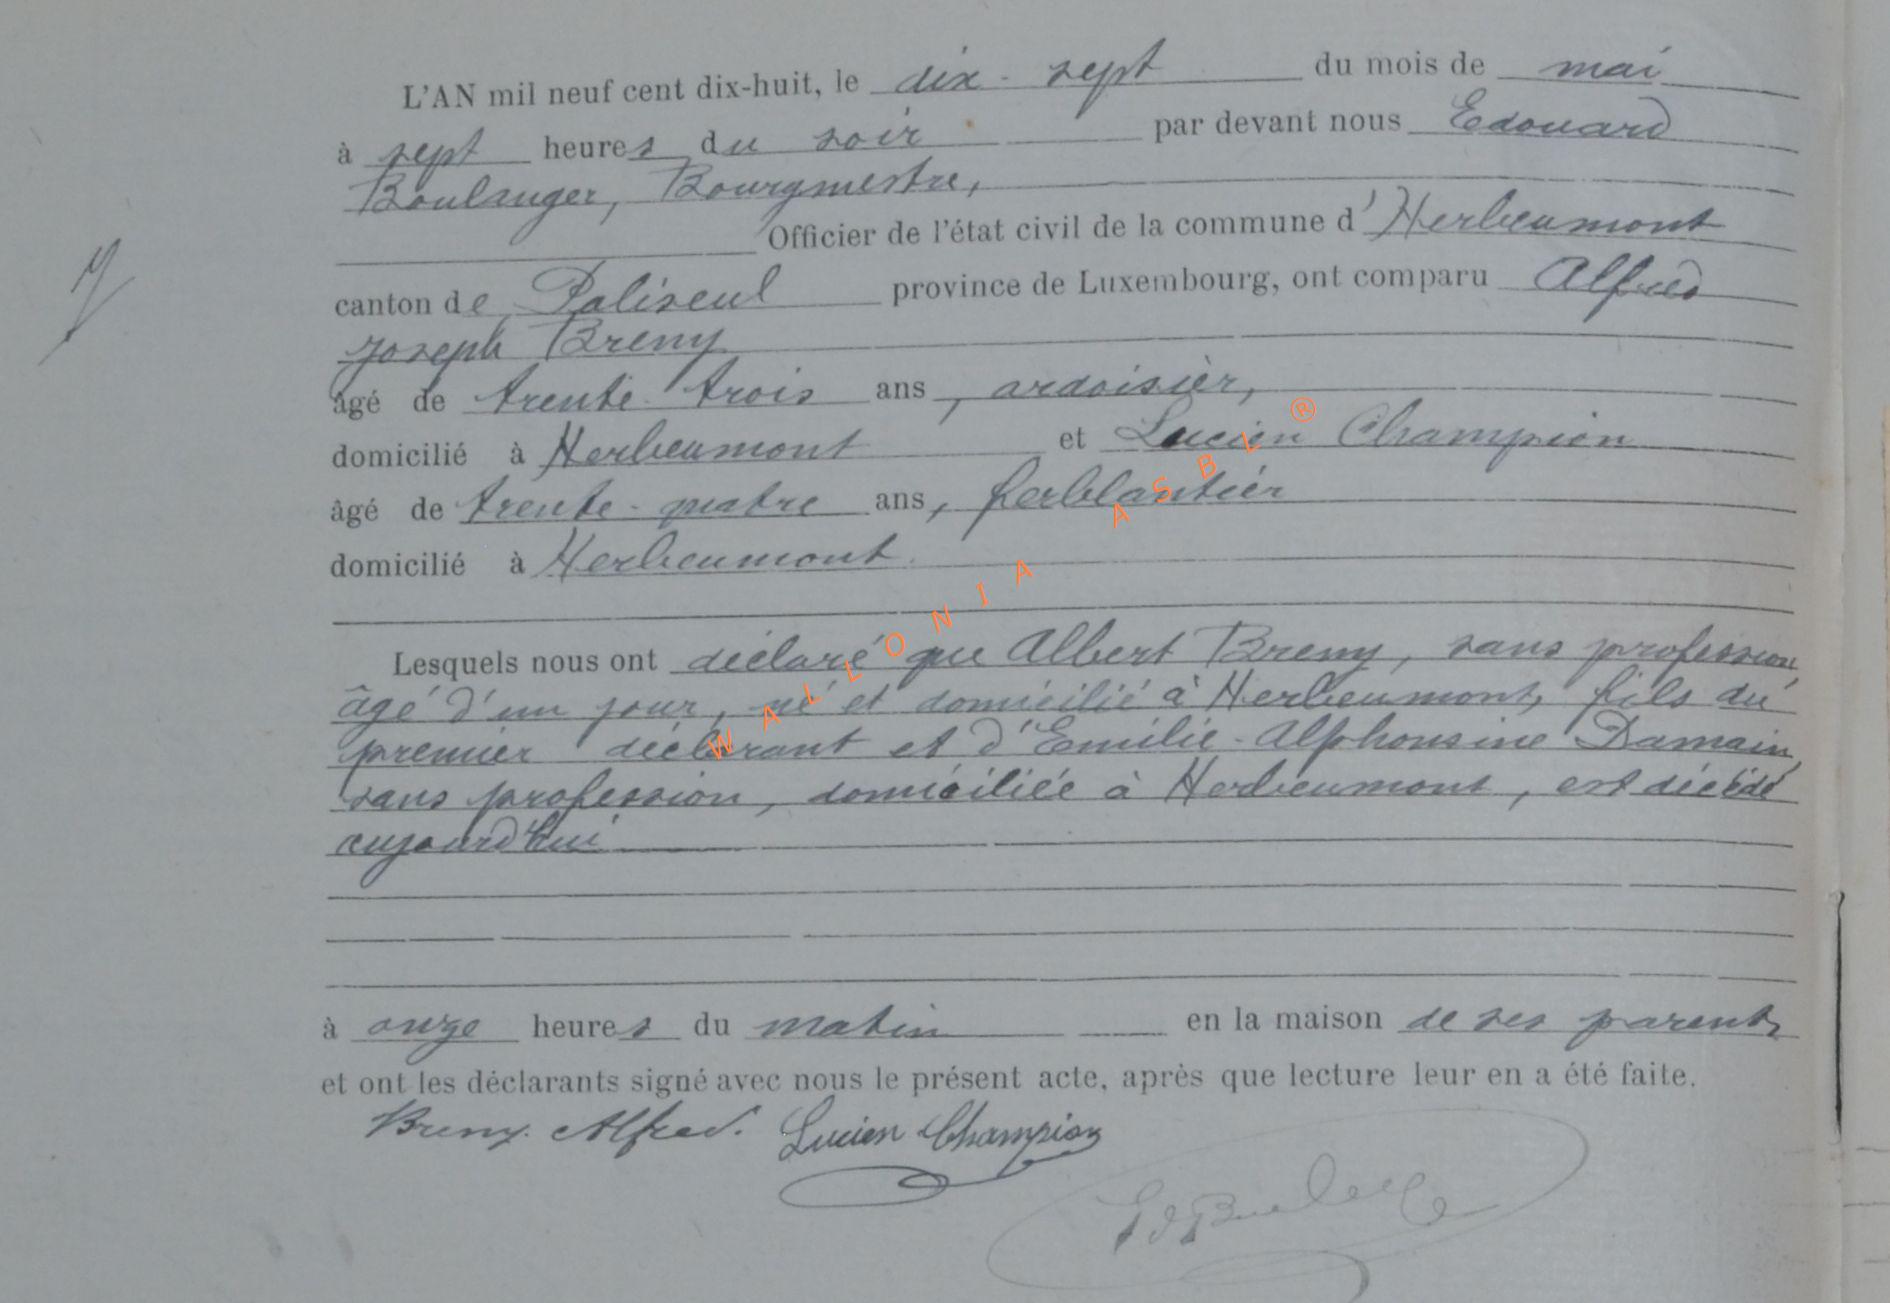 L'AN mil neuf cent dix-huit, le dix-sept du mois de mai
à sept heures du soir par devant nous Edouard
Boulanger, Bourgmestre,
Officier de l'état civil de la commune d'Herbeumont
canton de Paliseul province de Luxembourg, ont comparu Alfred
Joseph Breny
âgé de trente-trois ans, ardoisier,
domicilié à Herbeumont et Lucien Champion
âgé de trente-quatre ans, ferblantier
domicilié à Herbeumont.
Lesquels nous ont déclaré que Albert Breny, sans profession,
âgé d'un jour, né et domicilié à Herbeumont, fils du
premier déclarant et d'Emilie-Alphonsine Damain,
sans profession, domiciliée à Herbeumont, est décédé
aujourd'hui
à onze heures du matin en la maison de ses parents
et ont les déclarants signé avec nous le présent acte, après que lecture leur en a été faite.
Breny Alfred. Lucien Champion
WALLONIA ASBL ®